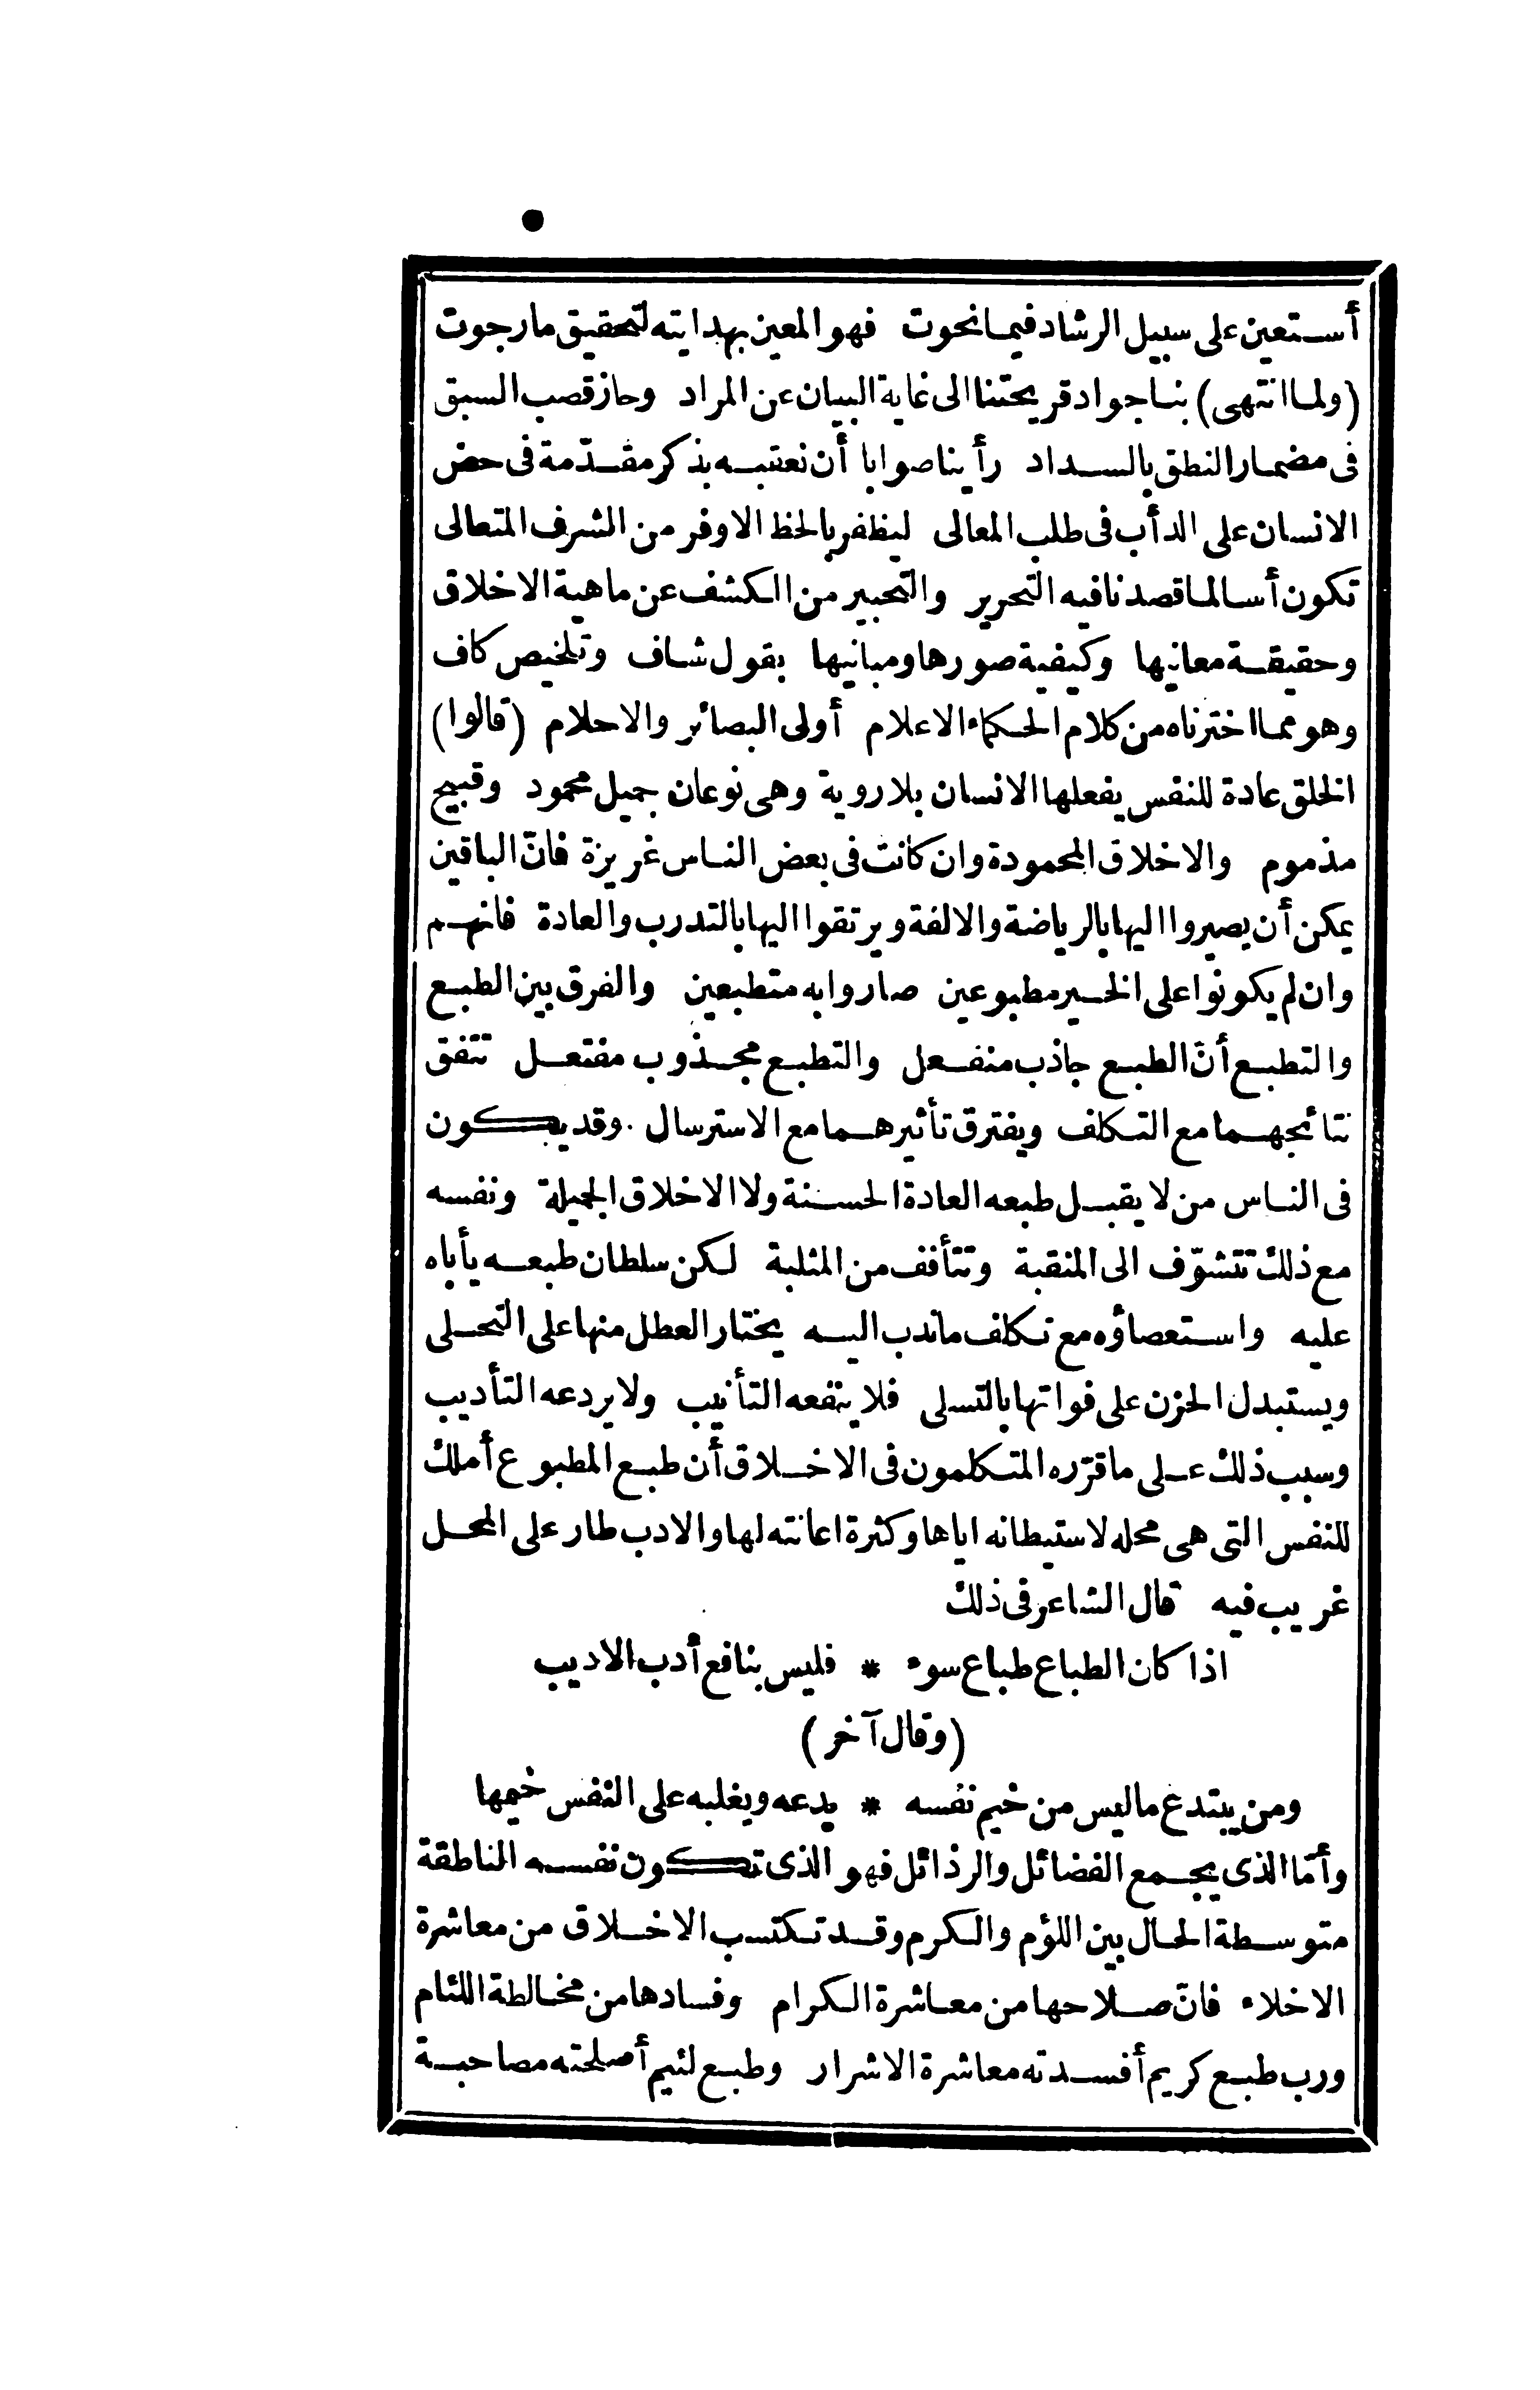 أستعين على سبيل الرشاد فيما نحوت فهو المعين بهدايته لتحقيق ما رجوت
(ولما انتهى) بنا جواد قريحتنا الى غاية البيان عن المراد وحاز قصب السبق
فى مضمار النطق بالسداد رأينا صوابا أن نعتبه بذكر مقدّمة فى حض
الانسان على الدأب فى طلب المعالى ليظفر بالحظ الاوفر من الشرف المتعالى
تكون أسا لما قصدنا فيه التحرير والتحبير من الكشف عن ماهية الاخلاق
وحقيقة معانيها وكيفية صورها ومبانيها بقول شاف وتلخيص كاف
وهو مما اخترناه من كلام الحكماء الاعلام أولى البصائر والاحلام (قالوا)
الخلق عادة للنفس يفعلها الانسان بلا روية وهى نوعان جميل محمود وقبيح
مذموم والاخلاق المحمودة وان كانت فى بعض الناس غريزة فانّ الباقين
يمكن أن يصيروا اليها بالرياضة والالفة ويرتقوا اليها بالتدرب والعادة فانهم
وان لم يكونوا على الخير مطبوعين صاروا به متطبعين والفرق بين الطبع
والتطبع أنّ الطبع جاذب منفعل والتطبع مجذوب مفتعل تتفق
نتائجهما مع التكلف ويفترق تأثيرهما مع الاسترسال . وقد يكون
فى الناس من لا يقبل طبعه العادة الحسنة ولا الاخلاق الجميلة ونفسه
مع ذلك تتشوّف الى المنقبة وتتأفف من المثلبة لكن سلطان طبعه يأباه
عليه واستعصاؤه مع تكلف ما ندب اليه يختار العطل منها على التحلى
ويستبدل الحزن على فواتها بالتسلى فلا ينفعه التأنيب ولا يردعه التأديب
وسبب ذلك على ما قرّره المتكلمون فى الاخلاق أن طبع المطبوع أملك
للنفس التى هى محله لاستيطانه اياها وكثرة اعانته لها والادب طار على المحل
غريب فيه قال الشاعر فى ذلك
اذا كان الطباع طباع سوء * فليس بنافع أدب الاديب
(وقال آخر)
ومن يبتدع ما ليس من خيم نفسه * يدعه ويغلبه على النفس خيمها
وأمّا الذى يجمع الفضائل والرذائل فهو الذى تكون نفسه الناطقة
متوسطة الحال بين اللؤم والكرم وقد تكتسب الاخلاق من معاشرة
الاخلاء فانّ صلاحها من معاشرة الكرام وفسادها من مخالطة اللئام
ورب طبع كريم أفسدته معاشرة الاشرار وطبع لئيم أصلحته مصاحبة